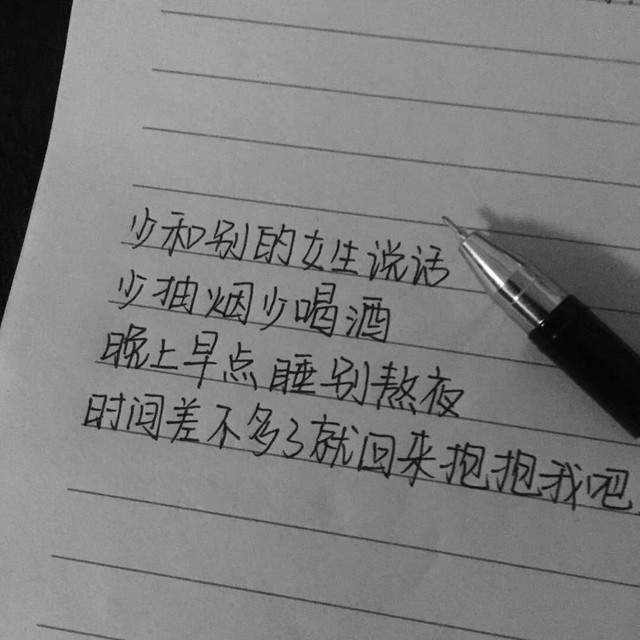 少和别的女生说话
少抽烟少喝酒
晚上早点睡别熬夜
时间差不多了就回来抱抱我吧